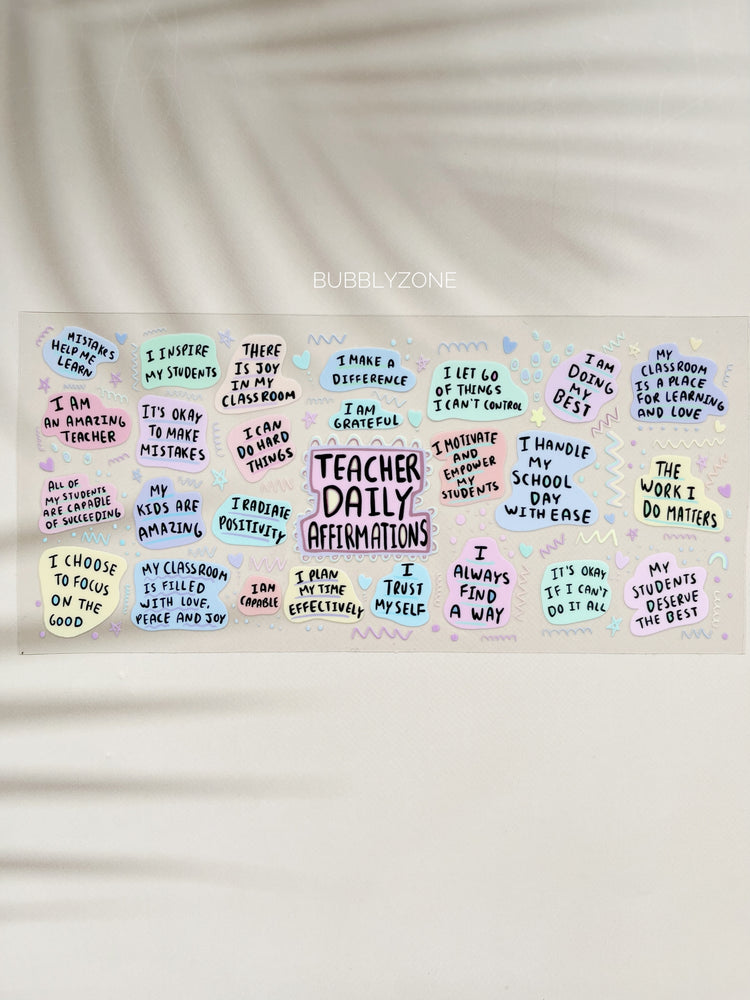 BUBBLYZONE
MISTAKES
HELP ME
LEARN
I INSPIRE
MY STUDENTS
THERE
IS JOY
IN MY
CLASSROOM
I MAKE A
DIFFERENCE
I AM
GRATEFUL
I LET GO
OF THINGS
I CAN'T CONTROL
I AM
DOING
MY
BEST
MY
CLASSROOM
IS A PLACE
FOR LEARNING
AND LOVE
I AM
AN AMAZING
TEACHER
IT'S OKAY
TO MAKE
MISTAKES
I CAN
DO HARD
THINGS
TEACHER
DAILY
AFFIRMATIONS
I MOTIVATE
AND
EMPOWER
MY
STUDENTS
I HANDLE
MY
SCHOOL
DAY
WITH EASE
THE
WORK I
DO MATTERS
ALL OF
MY STUDENTS
ARE CAPABLE
OF SUCCEEDING
MY
KIDS ARE
AMAZING
I RADIATE
POSITIVITY
I CHOOSE
TO FOCUS
ON THE
GOOD
MY CLASSROOM
IS FILLED
WITH LOVE,
PEACE AND JOY
I AM
CAPABLE
I PLAN
MY TIME
EFFECTIVELY
I
TRUST
MYSELF
I
ALWAYS
FIND
A WAY
IT'S OKAY
IF I CAN'T
DO IT ALL
MY
STUDENTS
DESERVE
THE BEST